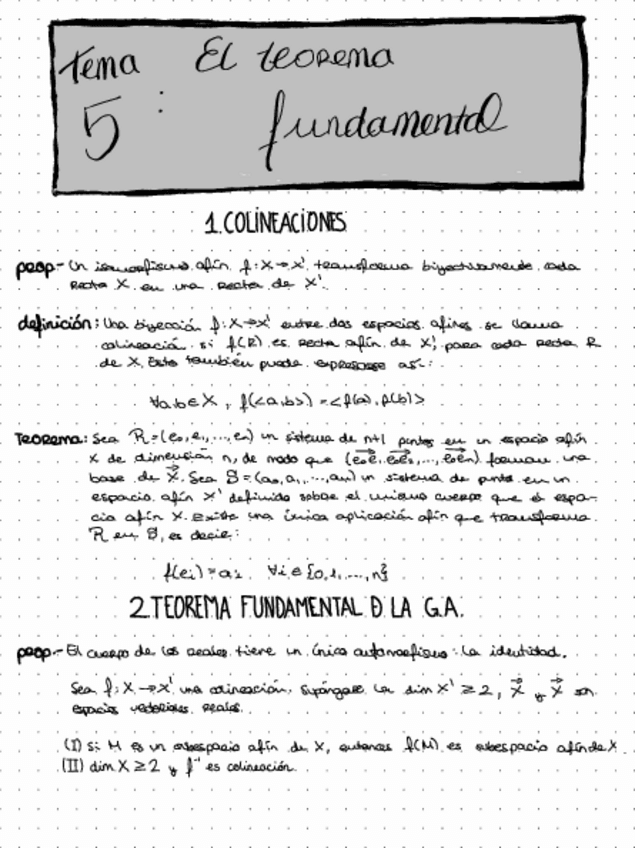 Tema El teorema
5: fundamental
1. COLINEACIONES
prop.- Un isomorfismo afín f: X→X' transforma biyectivamente cada
recta X en una recta de X'.
definición: Una biyección f: X→X' entre dos espacios afines se llama
colineación si f(R) es recta afín de X', para cada recta R
de X. Esto también puede expresarse así:
∀a,b∈X, f(<a,b>) = <f(a), f(b)>
Teorema: Sea R=(e₀,e₁,...,eₙ) un sistema de n+1 puntos en un espacio afín
X de dimensión n, de modo que (e₀e₁, e₀e₂,..., e₀eₙ) forman una
base de X⃗. Sea S=(a₀,a₁,...,aₙ) un sistema de puntos en un
espacio afín X' definido sobre el mismo cuerpo que el espa-
cio afín X. Existe una única aplicación afín que transforma
R en S, es decir:
f(eᵢ)=aᵢ ∀i∈{0,1,...,n}
2. TEOREMA FUNDAMENTAL D LA G.A.
prop.- El cuerpo de los reales tiene un único automorfismo: la identidad.
Sea f: X→X' una colineación. Supóngase dim X' ≥ 2, X⃗ y X⃗ son
espacios vectoriales reales.
(I) Si M es un subespacio afín de X, entonces f(M) es subespacio afín de X
(II) dim X ≥ 2 y f⁻¹ es colineación.